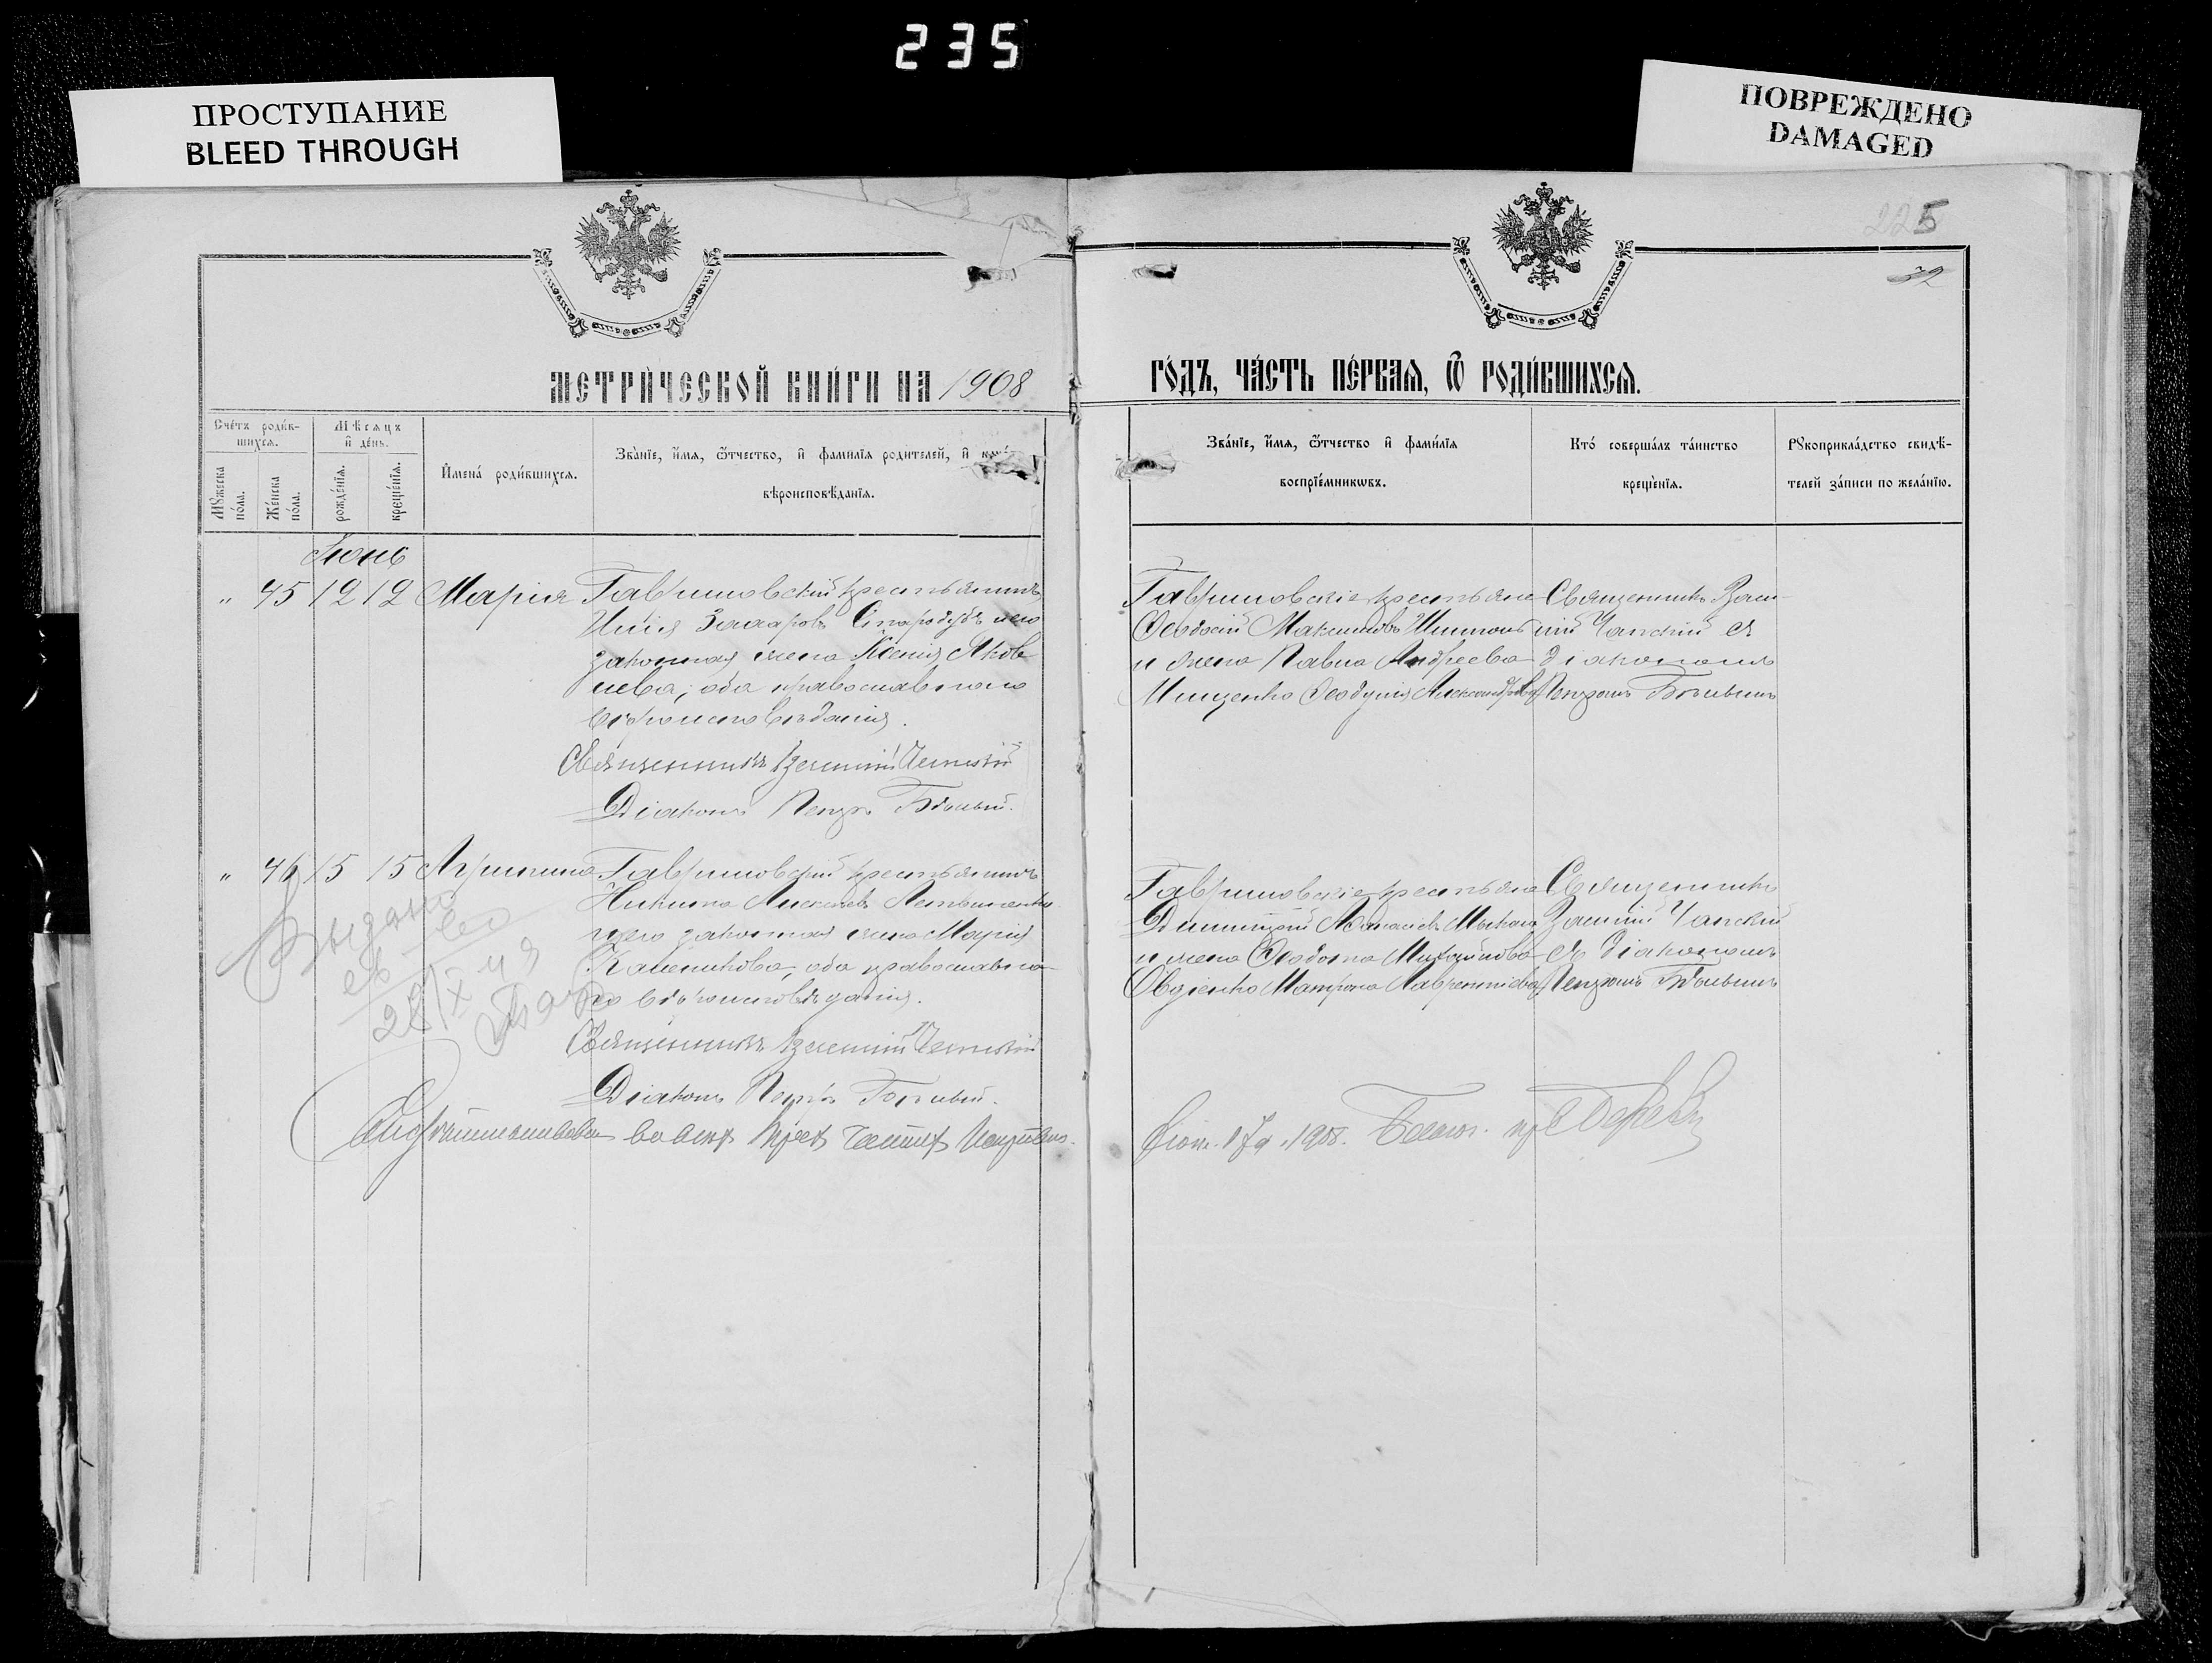 235
ПРОСТУПАНИЕ
BLEED THROUGH
ПОВРЕЖДЕНО
DAMAGED
225
32
МЕТРИ́ЧЕСКОЙ КНИ́ГИ НА 1908
ГО́ДЪ, ЧА́СТЬ ПЕ́РВАѦ, Ѿ РОДИ́ВШИХСѦ.
Сче́тъ роди́в-
шихсѧ.
Мѣ́сѧцъ
и҆ де́нь.
Мꙋ́жеска
по́ла.
Же́нска
по́ла.
рожде́нїѧ.
креще́нїѧ.
И҆мена̀ роди́вшихсѧ.
Зва́нїе, и҆́мѧ, ѻ҆́тчество, и҆ фами́лїѧ роди́телей, и҆
вѣроисповѣ́данїѧ.
Зва́нїе, и҆́мѧ, ѻ҆́тчество и҆ фами́лїѧ
воспрїе́мникѡвъ.
Кто̀ соверша́лъ та́инство
креще́нїѧ.
Рꙋкоприкла́дство свидѣ́-
телей за́писи по жела́нїю.
Іюнь
" 45 12 12 Марія Гавриловскій крестьянинъ
Илія Захаровъ Стародубъ и его
законная жена Ксенія Яков
лева, оба православнаго
вѣроисповѣданія.
Священникъ Василій Чапскій
Діаконъ Петръ Бѣлый.
Гавриловскіе крестьяне
Ѳеодосій Максимовъ
и жена Павла Андреева
Мищенко Ѳеодулія Александрова
Священникъ Васи-
лій Чапскій съ
діакономъ
Петромъ Бѣлымъ
" 46 15 15 Агрипина Гавриловскій крестьянинъ
Никита Алексѣевъ
и его законная жена Марія
Калиникова, оба православна-
го вѣроисповѣданія.
Священникъ Василій Чапскій
Діаконъ Петръ Бѣлый.
Гавриловскіе крестьяне
Димитрій
и жена Ѳеодота Михайлова
Овдіенко Матрона Лаврентіева
Священникъ
Василій Чапскій
съ діакономъ
Петромъ Бѣлымъ
Выдано
св-во
28/X-49
во всѣхъ трехъ частяхъ
1908. Благоч.